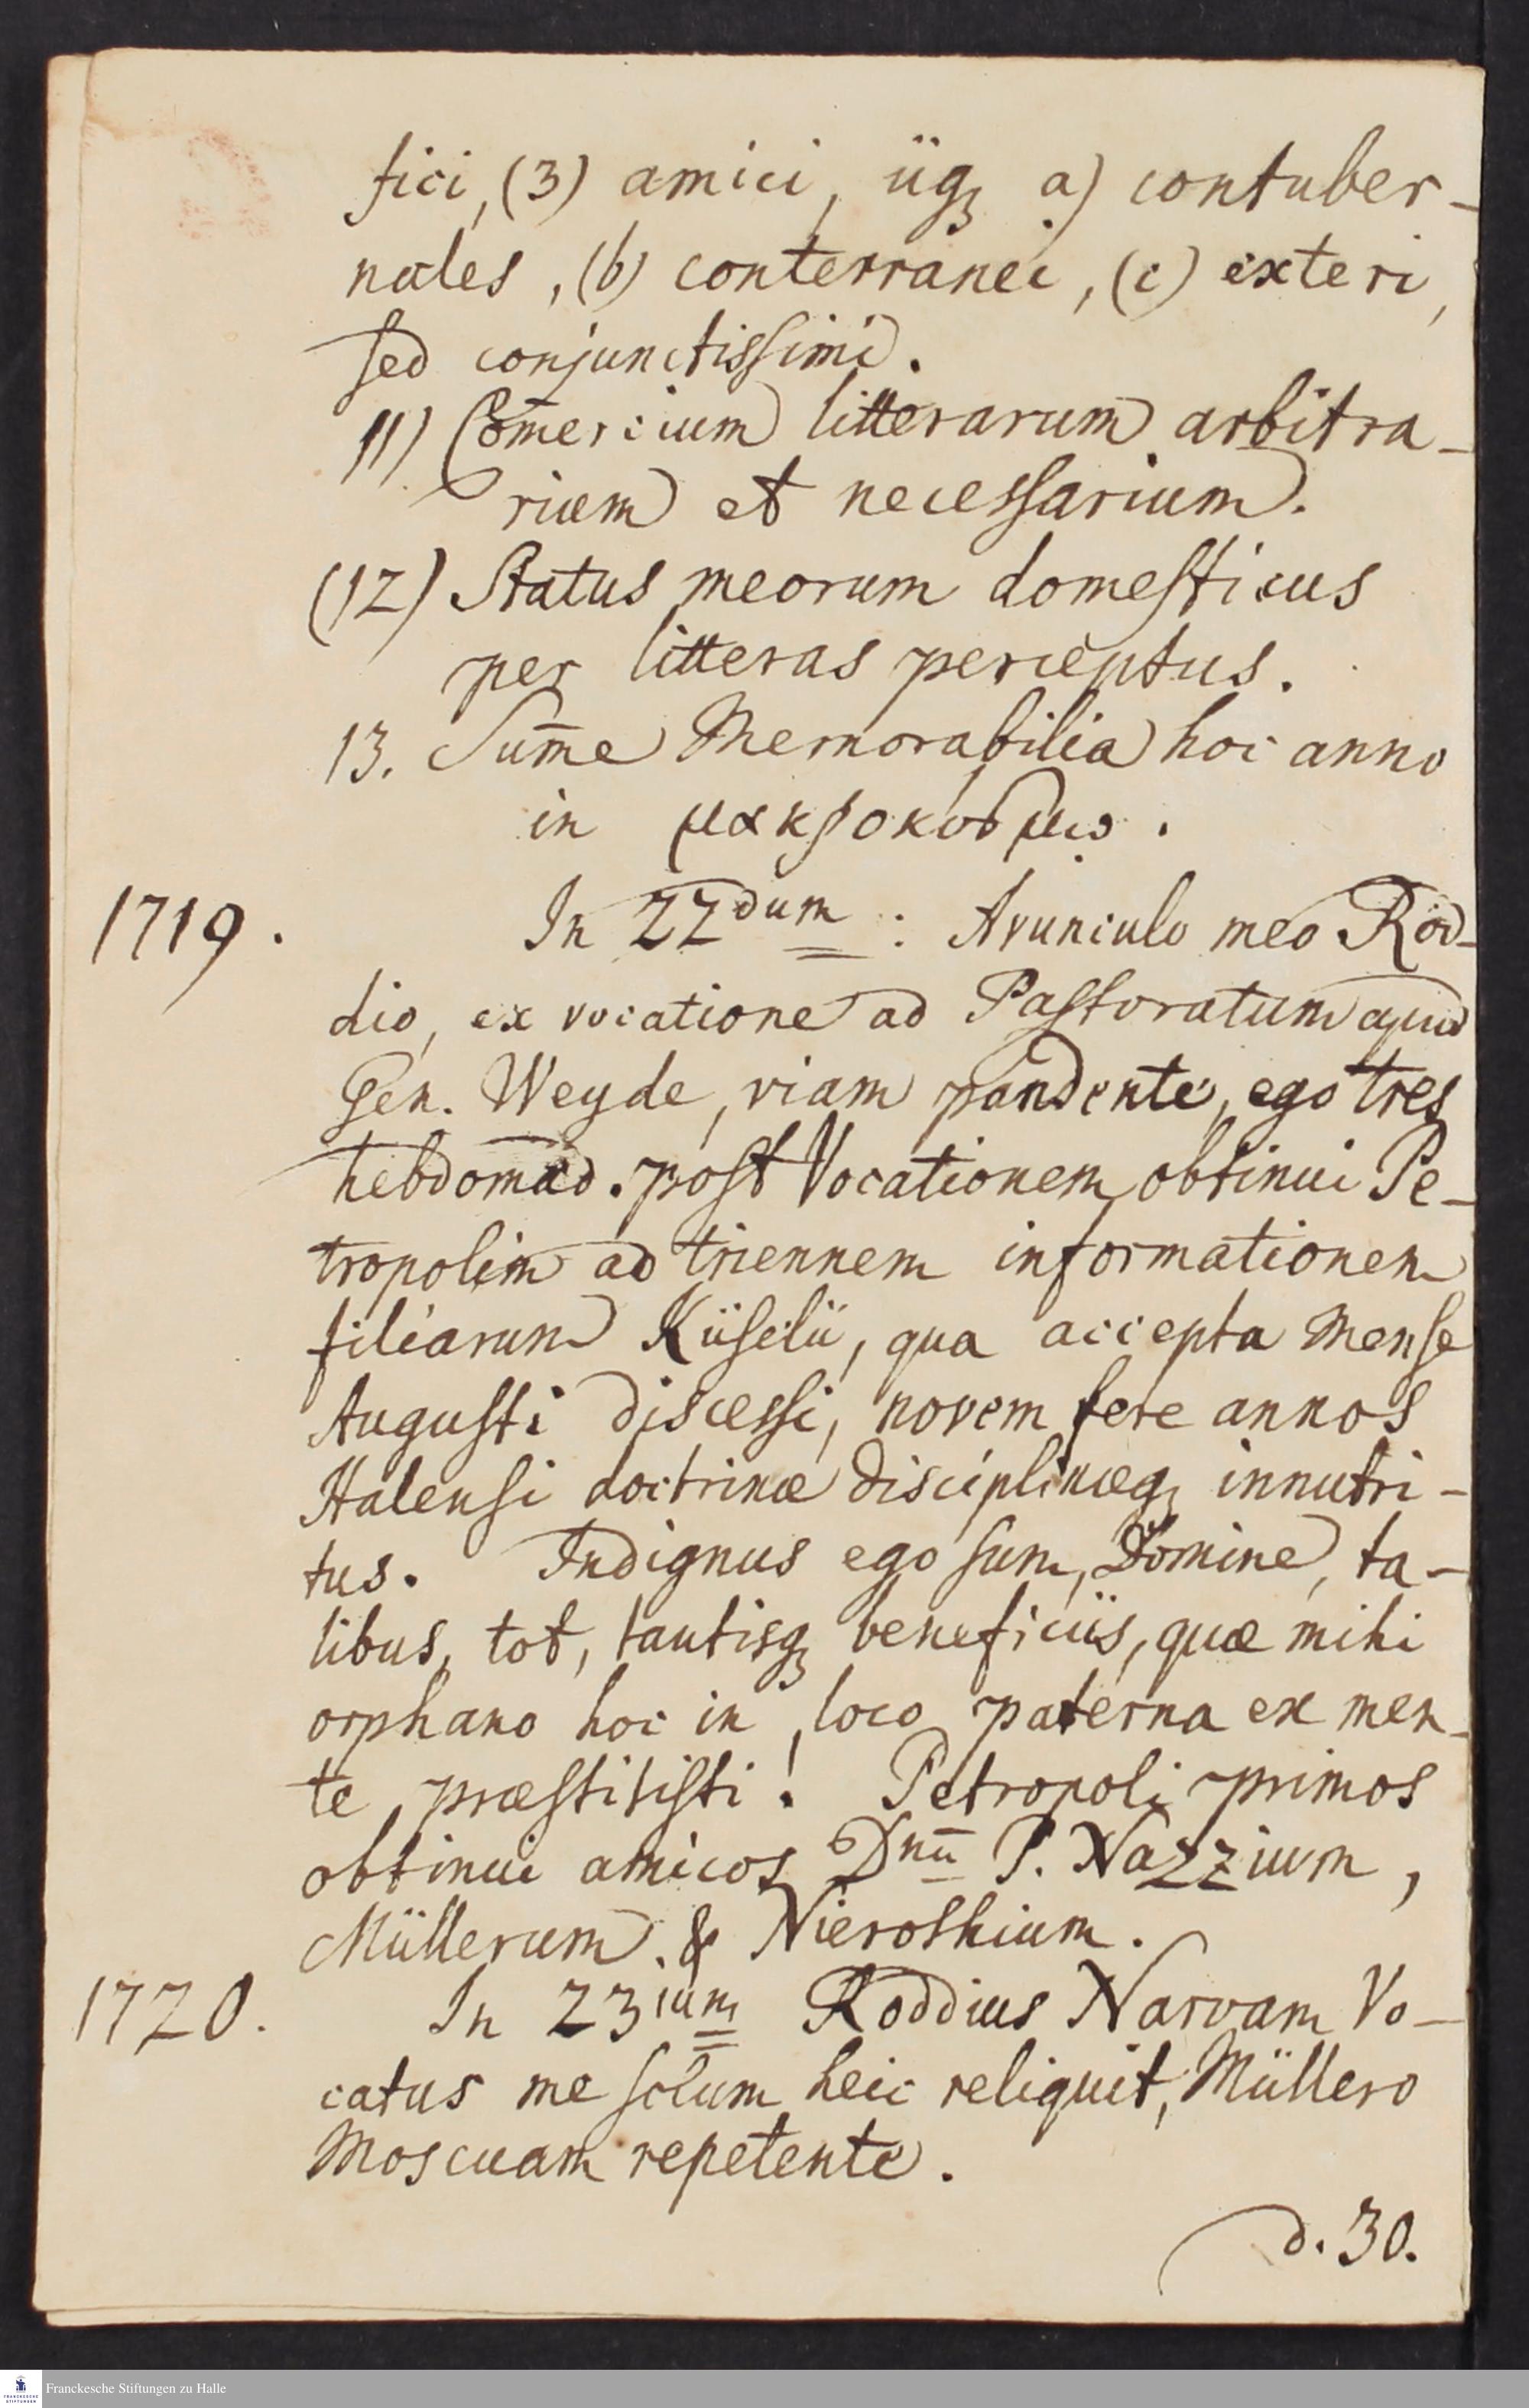 fici, (3) amici, iiq; a) contuber-
nales, (b) conterranei, (c) exteri,
sed conjunctissimi.
11) Com̄ercium litterarum arbitra-
rium et necessarium.
(12) Status meorum domesticus
per litteras perceptus.
13. Sum̄e Memorabilia hoc anno
in μακροκοσμω.
1719. In 22dum: Avunculo meo Rod-
dio, ex vocatione ad Pastoratum apud
Gen. Weyde, viam pandente, ego tres
hebdomad. post Vocationem obtinui Pe-
tropolim ad triennem informationem
filiarum Küselii, qua accepta Mense
Augusti discessi, novem fere annos
Halensi doctrinæ disciplinæq; innutri-
tus. Indignus ego sum, Domine, ta-
libus, tot, tantisq; beneficiis, quæ mihi
orphano hoc in loco paterna ex men-
te præstitisti! Petropoli primos
obtinui amicos Dnū P. Nazzium,
Müllerum & Nierothium.
1720. In 23ium Roddius Narvam Vo-
catus me solum heic reliquit, Müllero
Moscuam repetente.
d. 30.
Franckesche Stiftungen zu Halle